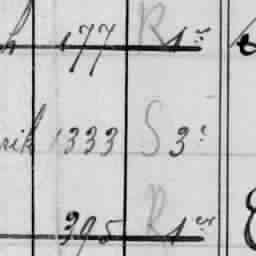 h 177 R 1er
rik 1333 S 3e
395 R 1er